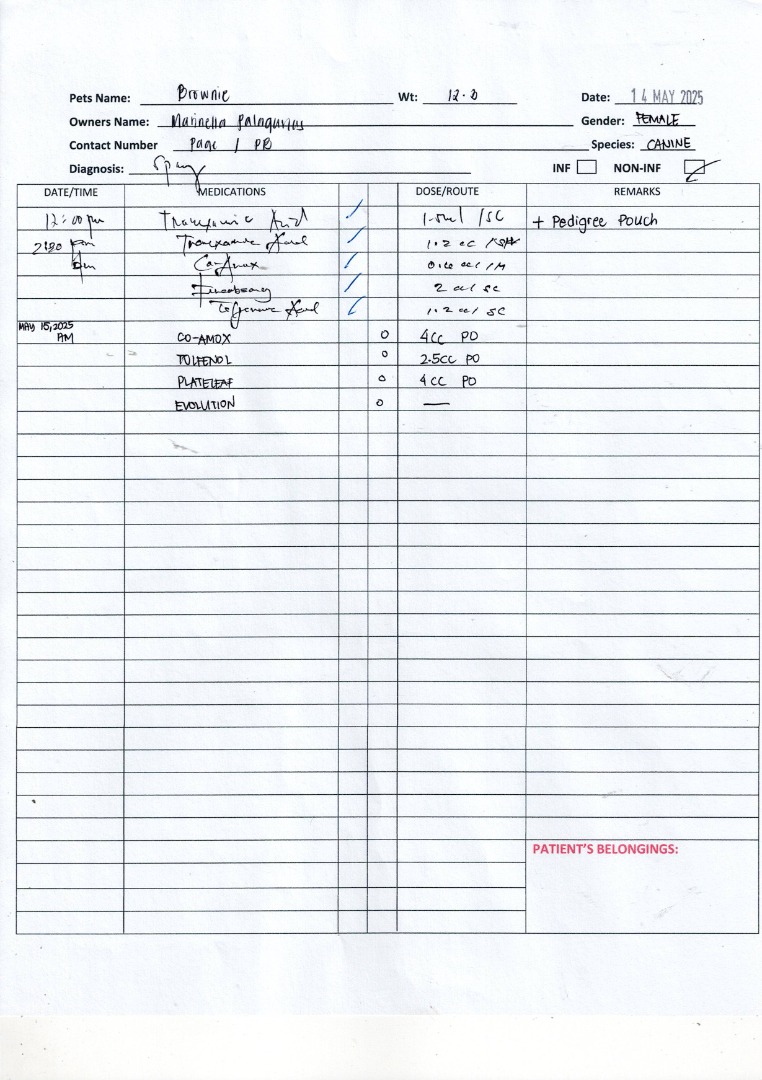 Pets Name: Brownie Wt: 12.0 Date: 14 MAY 2025
Owners Name: Marinella Gender: FEMALE
Contact Number Page 1 PR Species: CANINE
Diagnosis: Spay INF NON-INF
DATE/TIME MEDICATIONS DOSE/ROUTE REMARKS
12:00 pm Tranexamic Acid 1.5ml / SC + Pedigree Pouch
Tranexamic Acid 1.2 cc
Co-Amox
2 cc / SC
1.2 cc / SC
MAY 15, 2025
AM CO-AMOX 0 4cc PO
TOLFENOL 0 2.5cc PO
PLATELEAF 0 4cc PO
EVOLUTION 0 —
PATIENT'S BELONGINGS: